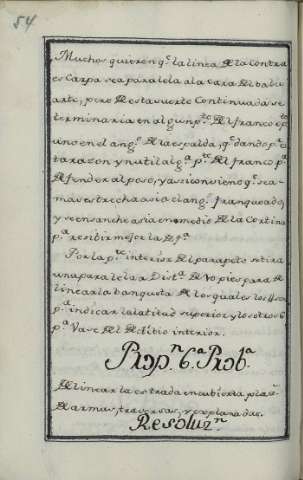 54
Muchos quieren q.e la linea de la contra
escarpa sea paralela a la cara del balu
arte, pero de esta suerte continuada se
terminaria en algun p.to del franco opu
uno en el ang.o de la espalda, q.e dando p.r
tarazon y nutil alg.a p.te del franco p.a
defender al poso, y assi conviene q.e sea
mas estrecha asia el ang.o franqueado,
y se ensanche asia en medio de la Cortina
p.a resibir mejor la df.a
Por la p.te interior del parapeto se tira
una paralela a Dist.a de 10 pies para de
linear la banqueta de los quales los 4 son
p.a indicar la latitud superior y los otros 6
p.a Vase del declibio interior.
Prop.n 6.a Prob.a
Delinear la estrada encubierta, plas
de armas, traversas, y explanadas.
Resoluz.n